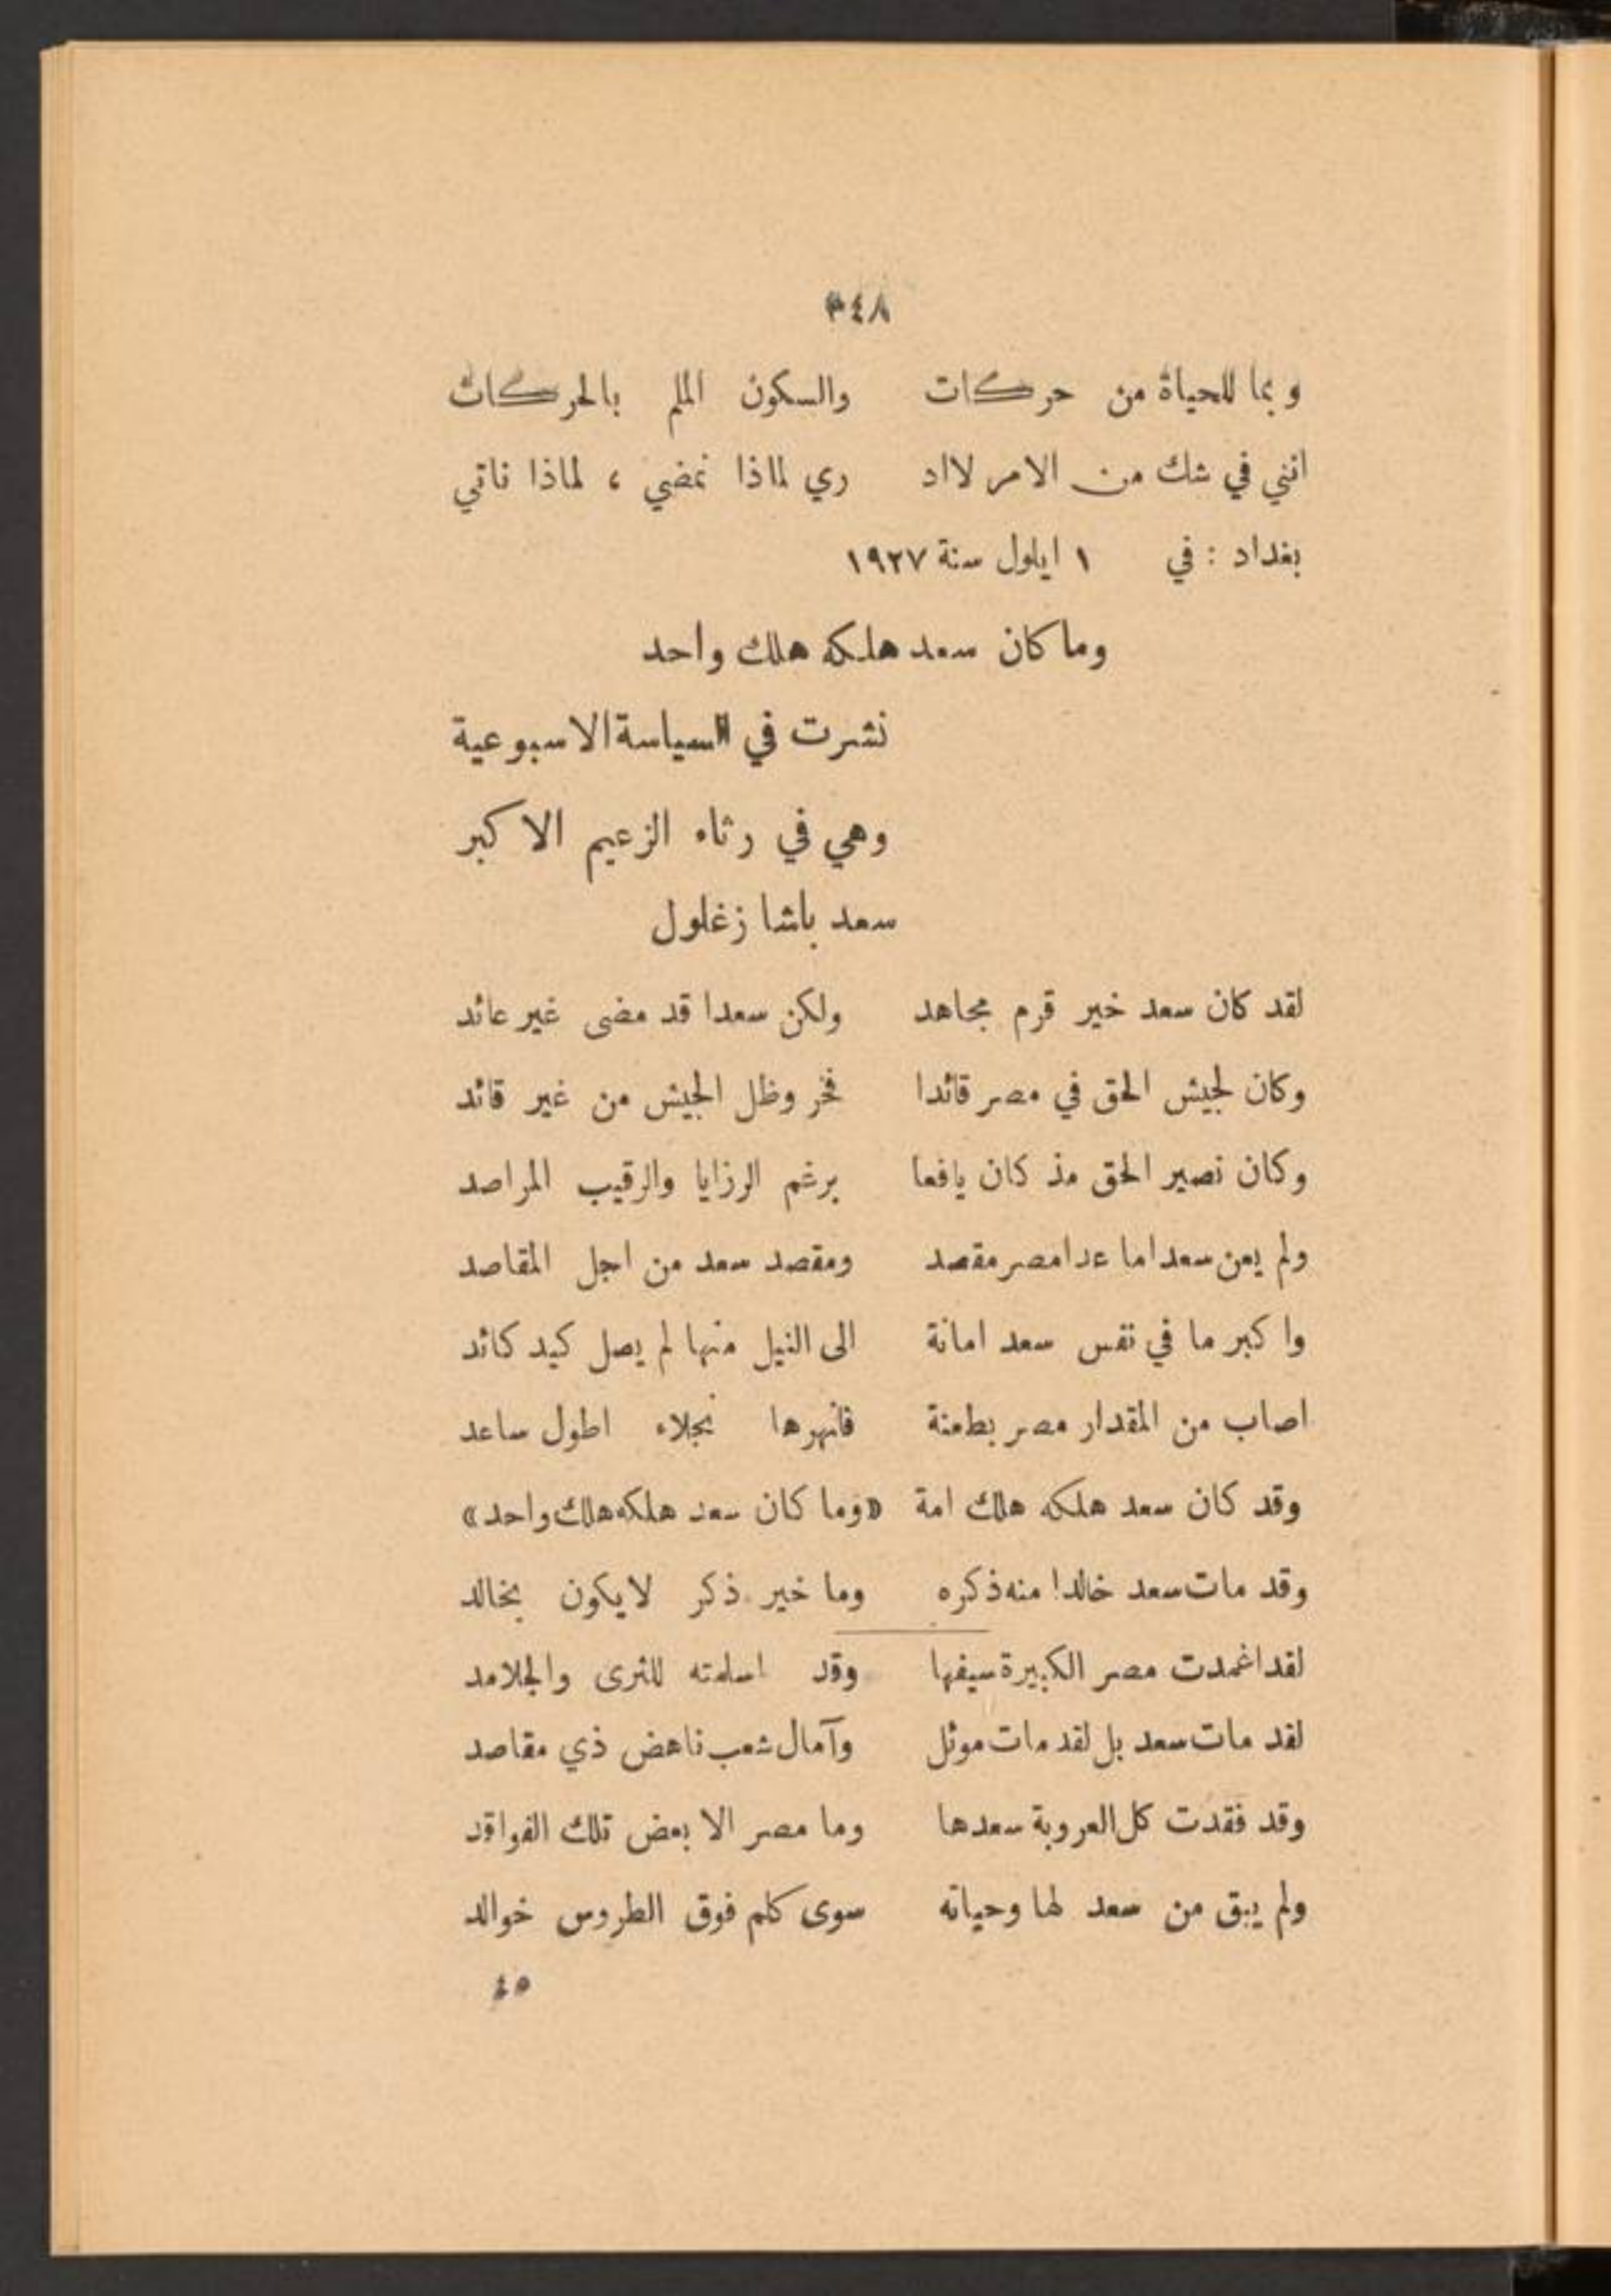 ٣٤٨
وبما للحياة من حركات والسكون الملم بالحركات
انني في شك من الامر لااد ري لماذا نمضي ، لماذا ناتي
بغداد : في ١ ايلول سنة ١٩٢٧
وما كان سعد هلكه هلك واحد
نشرت في السياسة الاسبوعية
وهي في رثاء الزعيم الاكبر
سعد باشا زغلول
لقد كان سعد خير قرم مجاهد ولكن سعدا قد مضى غير عائد
وكان لجيش الحق في مصر قائدا فخر وظل الجيش من غير قائد
وكان نصير الحق مذ كان يافعا برغم الرزايا والرقيب المراصد
ولم يعن سعدا ما عدا مصر مقصد ومقصد سعد من اجل المقاصد
واكبر ما في نفس سعد امانة الى النيل منها لم يصل كيد كائد
اصاب من المقدار مصر بطعنة فانهرها نجلاء اطول ساعد
وقد كان سعد هلكه هلك امة «وما كان سعد هلكه هلك واحد»
وقد مات سعد خالدا منه ذكره وما خير ذكر لايكون بخالد
لقد اغمدت مصر الكبيرة سيفها وقد اسلمته للثرى والجلامد
لقد مات سعد بل لقد مات موئل وآمال شعب ناهض ذي مقاصد
وقد فقدت كل العروبة سعدها وما مصر الا بعض تلك الفواقد
ولم يبق من سعد لها وحياته سوى كلم فوق الطروس خوالد
٤٥